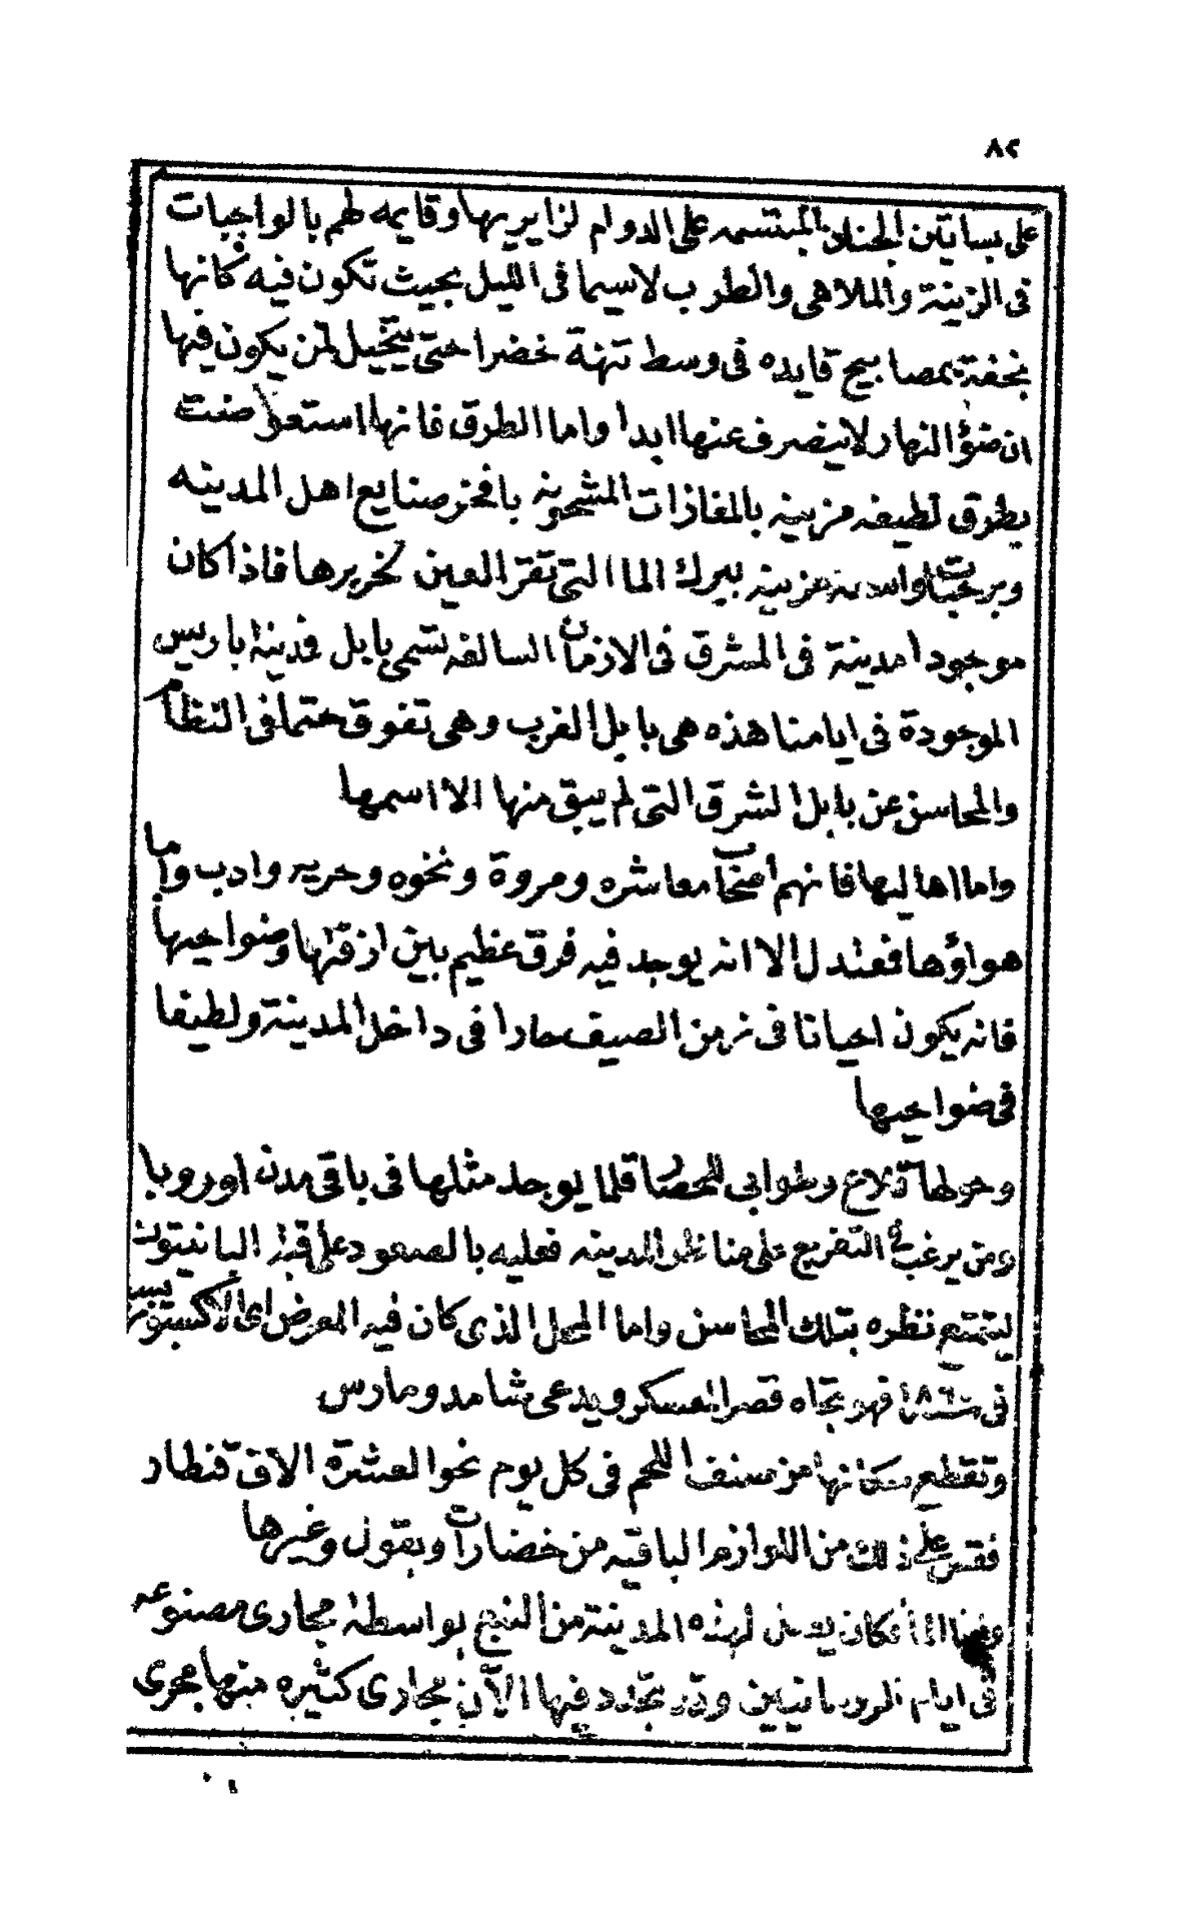 ٨٢
على بساتين الجنان المبتسمه على الدوام لزايريها وقايمه لهم بالواجبات
فى الزينة والملاهى والطرب لاسيما فى الليل بحيث تكون فيه كانها
بمصابيح قايده فى وسط خضرا حتى يتخيل لمن يكون فيها
ان ضؤ النهار لا ينصرف عنها ابدا واما الطرق فانها صنت
بطرق لطيفه مزينه بالمغازات المشحونه بافخر صنايع اهل المدينه
مزينه ببرك الما التى تقر العين لخريرها فاذا كان
موجودا مدينة فى المشرق فى الازمان السالفه تسمى بابل فمدينة باريس
الموجودة فى ايامنا هذه هى بابل الغرب وهى تفوق حتما فى النظام
والمحاسن عن بابل الشرق التى لم يبق منها الا اسمها
واما اهاليها فانهم اصحاب معاشره ومروة ونخوه وحريه وادب واما
هواؤها فمعتدل الا انه يوجد فيه فرق عظيم بين ازقتها وضواحيها
فانه يكون احيانا فى زمن الصيف حارا فى داخل المدينة ولطيفا
فى ضواحيها
وحولها قلاع وطوابى للحصار قلما يوجد مثلها فى باقى مدن اوروبا
ومن يرغب فى التفريج على مناظر المدينه فعليه بالصعود على قبة البانتيون
ليتمتع نظره بتلك المحاسن واما المحل الذى كان فيه المعرض اى
فى فهو تجاه قصر العسكر ويدعى شامد ومارس
وتقطع سكانها من صنف اللحم فى كل يوم نحو العشرة الاف قنطار
فقس على ذلك من اللوازم الباقيه من خضارات وبقول وغيرها
الما كان يصل لهذه المدينة من النبع بواسطة مجارى مصنوعه
فى ايام الرومانيين وقد تجدد فيها الآن مجارى كثيره منها مجرى